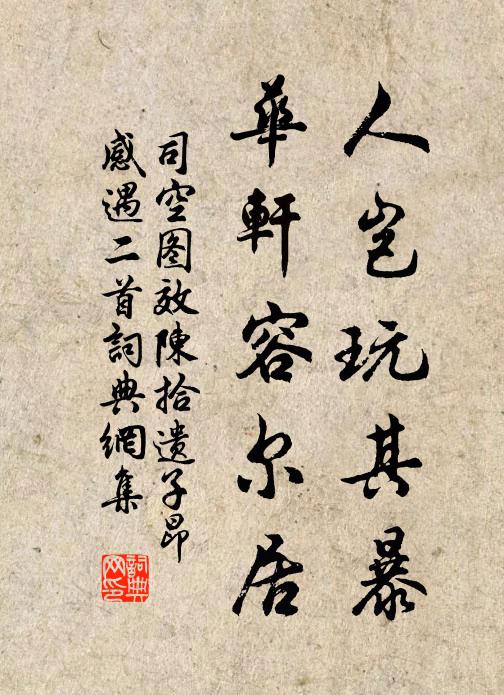 人岂玩其暴
華軒容尔居
司空图效陳拾遺子昂
感遇二首詞典網集
詞典
网印